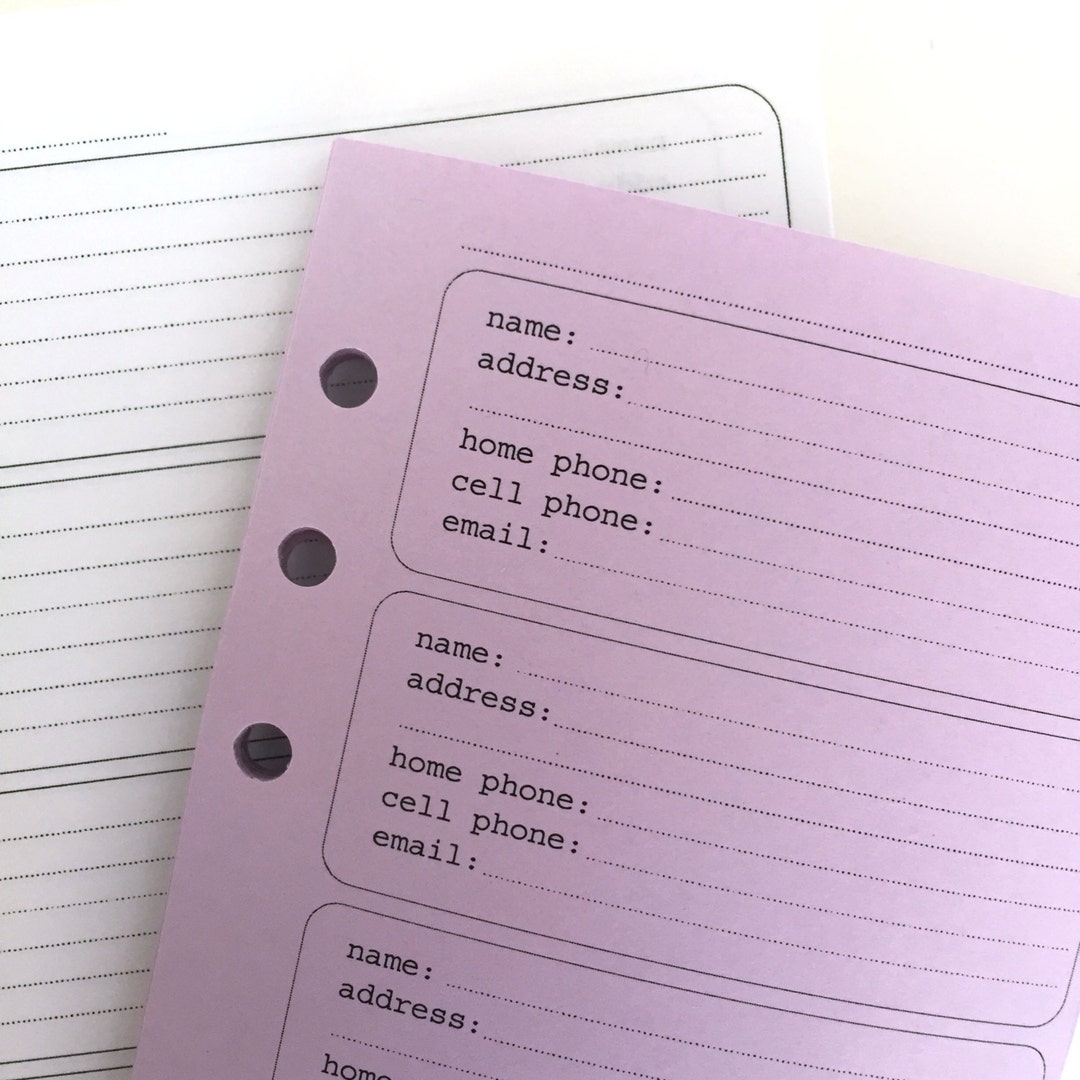 name:
address:
home phone:
cell phone:
email:
name:
address:
home phone:
cell phone:
email:
name:
address:
home